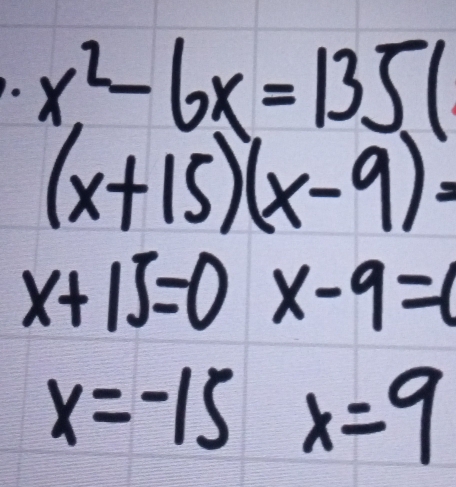 . x² - 6x = 135(
(x+15)(x-9)=
x+15=0 x-9=0
x=-15 x=9